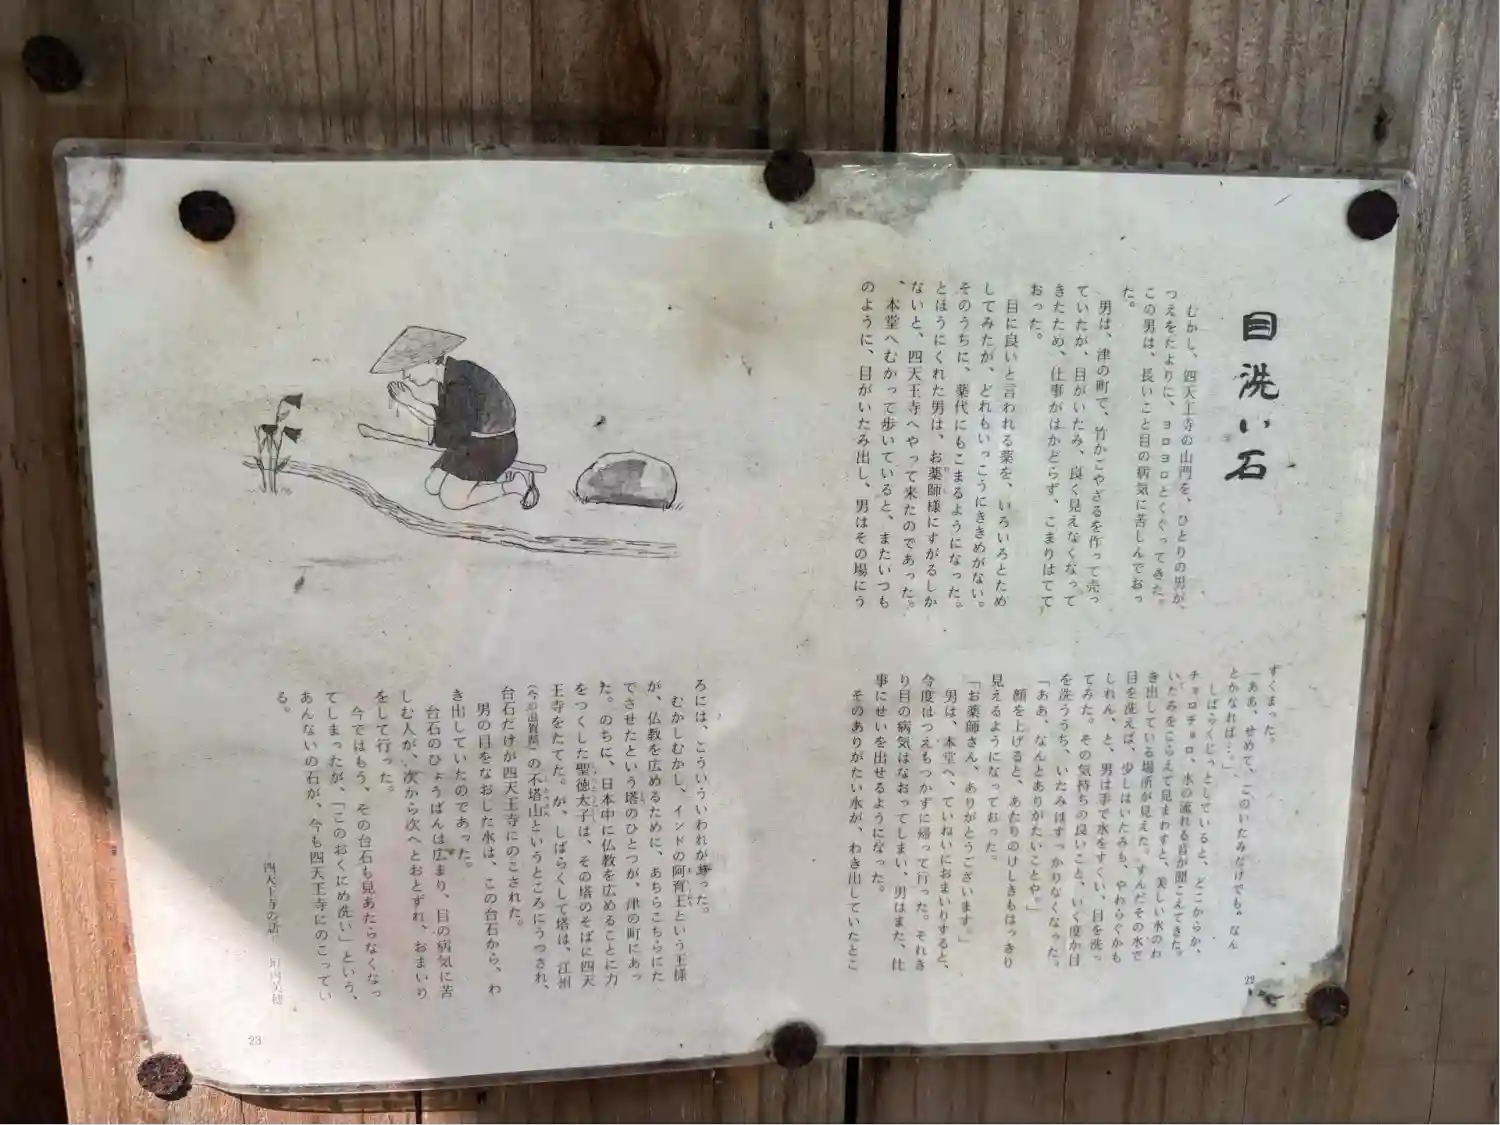 目洗い石
むかし、四天王寺の山門を、ひとりの男が、
つえをたよりに、ヨロヨロとくぐってきた。
この男は、長いこと目の病気に苦しんでおっ
た。
男は、津の町で、竹かごやざるを作って売っ
ていたが、目がいたみ、良く見えなくなって
きたため、仕事がはかどらず、こまりはてて
おった。
目に良いと言われる薬を、いろいろとため
してみたが、どれもいっこうにききめがない。
そのうちに、薬代にもこまるようになった。
とほうにくれた男は、お薬師様にすがるしか
ないと、四天王寺へやって来たのであった。
、本堂へむかって歩いていると、またいつも
のように、目がいたみ出し、男はその場にう
ずくまった。
「ああ、せめて、このいたみだけでも。なん
とかなれば…。」
しばらくじっとしていると、どこからか、
チョロチョロ、水の流れる音が聞こえてきた。
いたみをこらえて見まわすと、美しい水のわ
き出している場所が見えた。「すんだその水で
目を洗えば、少しはいたみも、やわらぐかも
しれん、と、男は手で水をすくい、目を洗っ
てみた。その気持ちの良いこと、いく度か目
を洗ううち、いたみはすっかりなくなった。
「ああ、なんとありがたいことや。」
顔を上げると、あたりのけしきもはっきり
見えるようになっておった。
「お薬師さん、ありがとうございます。」
男は、本堂へ、ていねいにおまいりすると、
今度はつえもつかずに帰って行った。それき
り目の病気はなおってしまい、男はまた、仕
事にせいを出せるようになった。
そのありがたい水が、わき出していたとこ
22
ろには、こういういわれが あった。
むかしむかし、インドの阿育王という王様
が、仏教を広めるために、あちらこちらにた
てさせたという塔のひとつが、津の町にあっ
た。のちに、日本中に仏教を広めることに力
をつくした聖徳太子は、その塔のそばに四天
王寺をたてた。が、しばらくして塔は、江州
(今の滋賀県)の不塔山というところにうつされ、
台石だけが四天王寺にのこされた。
男の目をなおじた水は、この台石から、わ
き出していたのであった。
台石のひょうばんは広まり、目の病気に苦
しむ人が、次から次へとおとずれ、おまいり
をして行った。
今ではもう、その台石も見あたらなくなっ
てしまったが、「このおくにめ洗い」という、
あんないの石が、今も四天王寺にのこってい
る。
四天王寺の話
23